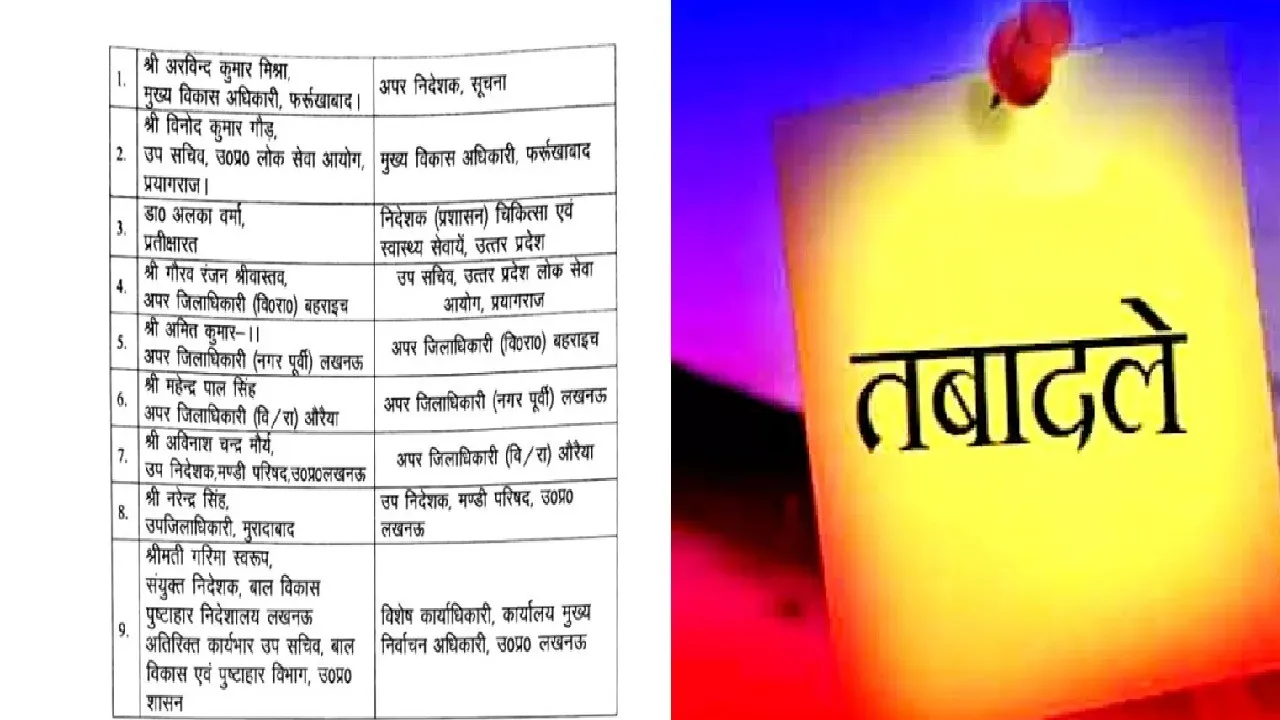 1. श्री अरविन्द कुमार मिश्रा,
मुख्य विकास अधिकारी, फर्रूखाबाद।
अपर निदेशक, सूचना
2. श्री विनोद कुमार गौड़,
उप सचिव, उ0प्र0 लोक सेवा आयोग,
प्रयागराज।
मुख्य विकास अधिकारी, फर्रूखाबाद
3. डा0 अलका वर्मा,
प्रतीक्षारत
निदेशक (प्रशासन) चिकित्सा एवं
स्वास्थ्य सेवायें, उत्तर प्रदेश
4. श्री गौरव रंजन श्रीवास्तव,
अपर जिलाधिकारी (वि0रा0) बहराइच
उप सचिव, उत्तर प्रदेश लोक सेवा
आयोग, प्रयागराज
5. श्री अमित कुमार-।।
अपर जिलाधिकारी (नगर पूर्वी) लखनऊ
अपर जिलाधिकारी (वि0रा0) बहराइच
6. श्री महेन्द्र पाल सिंह
अपर जिलाधिकारी (वि/रा) औरैया
अपर जिलाधिकारी (नगर पूर्वी) लखनऊ
7. श्री अविनाश चन्द्र मौर्य,
उप निदेशक,मण्डी परिषद,उ0प्र0लखनऊ
अपर जिलाधिकारी (वि/रा) औरैया
8. श्री नरेन्द्र सिंह,
उपजिलाधिकारी, मुरादाबाद
उप निदेशक, मण्डी परिषद, उ0प्र0
लखनऊ
9. श्रीमती गरिमा स्वरूप,
संयुक्त निदेशक, बाल विकास
पुष्टाहार निदेशालय लखनऊ
अतिरिक्त कार्यभार उप सचिव, बाल
विकास एवं पुष्टाहार विभाग, उ0प्र0
शासन
विशेष कार्याधिकारी, कार्यालय मुख्य
निर्वाचन अधिकारी, उ0प्र0 लखनऊ
तबादले